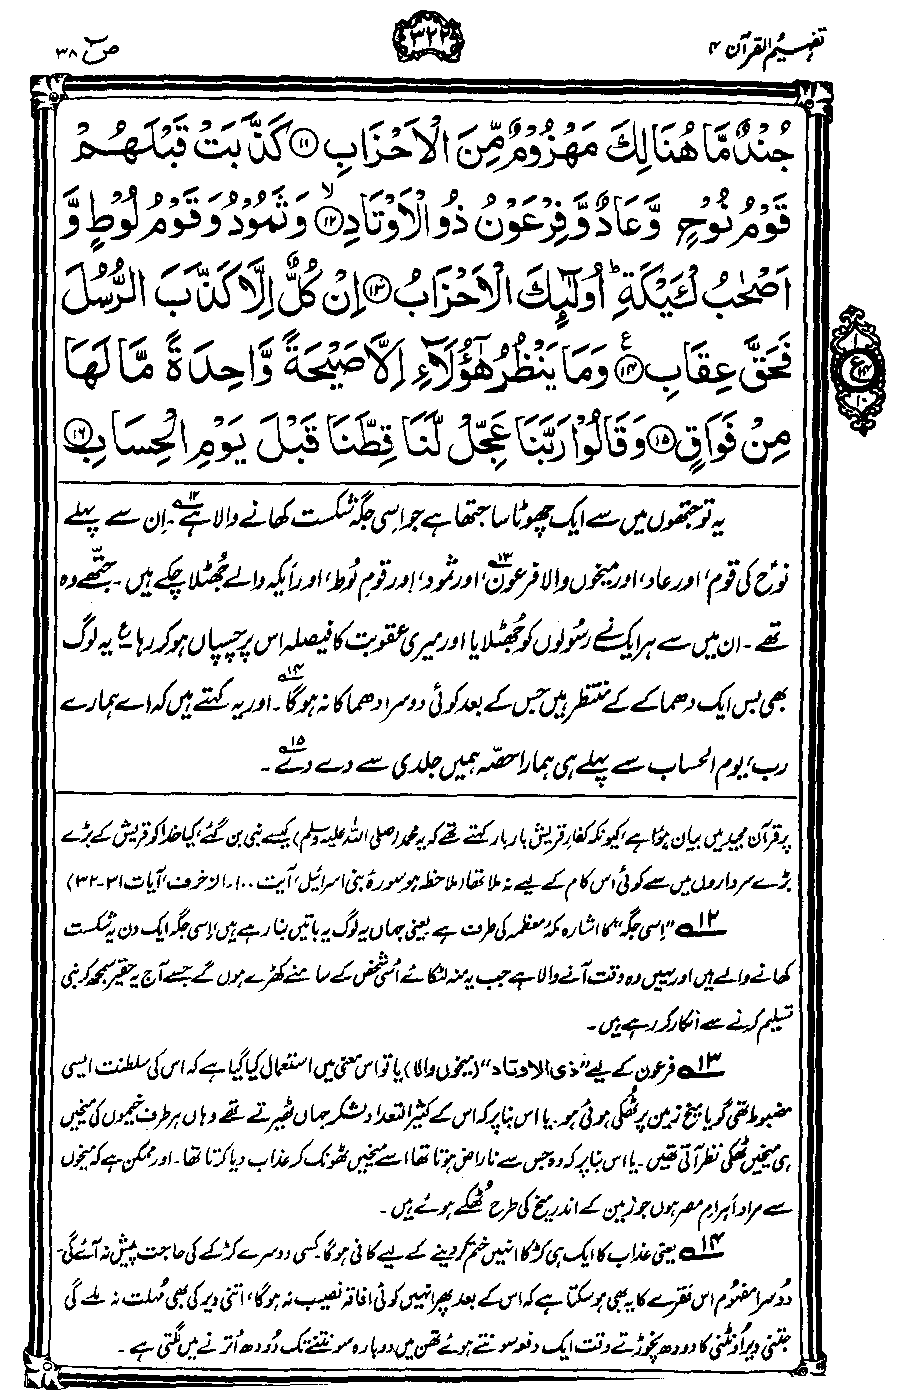 تفہیم القرآن ۴
۳۲۲
صٓ ۳۸
جُنْدٌ مَّا هُنَالِكَ مَهْزُوْمٌ مِّنَ الْاَحْزَابِ ۝۱۱ كَذَّبَتْ قَبْلَهُمْ
قَوْمُ نُوْحٍ وَّعَادٌ وَّفِرْعَوْنُ ذُو الْاَوْتَادِ ۝۱۲ۙ وَثَمُوْدُ وَقَوْمُ لُوْطٍ وَّ
اَصْحٰبُ لْئَيْكَةِ ؕ اُولٰٓئِكَ الْاَحْزَابُ ۝۱۳ اِنْ كُلٌّ اِلَّا كَذَّبَ الرُّسُلَ
فَحَقَّ عِقَابِ ۝۱۴ۧ وَمَا يَنْظُرُ هٰٓؤُلَآءِ اِلَّا صَيْحَةً وَّاحِدَةً مَّا لَهَا
مِنْ فَوَاقٍ ۝۱۵ وَقَالُوْا رَبَّنَا عَجِّلْ لَّنَا قِطَّنَا قَبْلَ يَوْمِ الْحِسَابِ ۝۱۶
۱
ع
۱۰
یہ تو جتھوں میں سے ایک چھوٹا سا جتھا ہے جو اِسی جگہ شکست کھانے والا ہے۱۲۔ اِن سے پہلے
نوحؑ کی قوم، اور عاد، اور میخوں والا فرعون۱۳، اور ثمود، اور قومِ لُوط، اور اَیکہ والے جُھٹلا چکے ہیں۔ جتّھے وہ
تھے۔ ان میں سے ہر ایک نے رسُولوں کو جُھٹلایا اور میری عقوبت کا فیصلہ اس پر چسپاں ہو کر رہا ؏ یہ لوگ
بھی بس ایک دھماکے کے منتظر ہیں جس کے بعد کوئی دوسرا دھماکا نہ ہوگا۱۴۔ اور یہ کہتے ہیں کہ اے ہمارے
رب، یوم الحساب سے پہلے ہی ہمارا حصّہ ہمیں جلدی سے دے دے۱۵۔
پر قرآن مجید میں بیان ہوا ہے، کیونکہ کفارِ قریش بار بار کہتے تھے کہ یہ محمد (صلی اللہ علیہ وسلم) کیسے نبی بن گئے، کیا خدا کو قریش کے بڑے
بڑے سرداروں میں سے کوئی اس کام کے لیے نہ ملا تھا (ملاحظہ ہو سورۂ بنی اسرائیل، آیت ۱۰۰۔ الزخرف، آیات ۳۱-۳۲)
۱۲ ”اِسی جگہ“ کا اشارہ مکۂ معظمہ کی طرف ہے یعنی جہاں یہ لوگ یہ باتیں بنا رہے ہیں، اِسی جگہ ایک دن یہ شکست
کھانے والے ہیں اور یہیں وہ وقت آنے والا ہے جب یہ منہ لٹکائے اُسی شخص کے سامنے کھڑے ہوں گے جسے آج یہ حقیر سمجھ کر نبی
تسلیم کرنے سے انکار کر رہے ہیں۔
۱۳ فرعون کے لیے ”ذی الاوتاد“ (میخوں والا) یا تو اس معنی میں استعمال کیا گیا ہے کہ اس کی سلطنت ایسی
مضبوط تھی گویا میخ زمین پر ٹُھکی ہوئی ہو۔ یا اس بنا پر کہ اس کے کثیر التعداد لشکر جہاں ٹھیرتے تھے وہاں ہر طرف خیموں کی میخیں
ہی میخیں ٹُھکی نظر آتی تھیں۔ یا اس بنا پر کہ وہ جس سے ناراض ہوتا تھا اسے میخیں ٹھونک کر عذاب دیا کرتا تھا۔ اور ممکن ہے کہ میخوں
سے مراد اَہرامِ مصر ہوں جو زمین کے اندر میخ کی طرح ٹُھکے ہوئے ہیں۔
۱۴ یعنی عذاب کا ایک ہی کڑکا انہیں ختم کر دینے کے لیے کافی ہوگا، کسی دوسرے کڑکے کی حاجت پیش نہ آئے گی۔
دُوسرا مفہُوم اس فقرے کا یہ بھی ہو سکتا ہے کہ اس کے بعد پھر انہیں کوئی افاقہ نصیب نہ ہوگا، اتنی دیر کی بھی مُہلت نہ ملے گی
جتنی دیر اُونٹنی کا دودھ نچوڑتے وقت ایک دفعہ سونتے ہوئے تھن میں دوبارہ سونتنے تک دُودھ اُترنے میں لگتی ہے۔